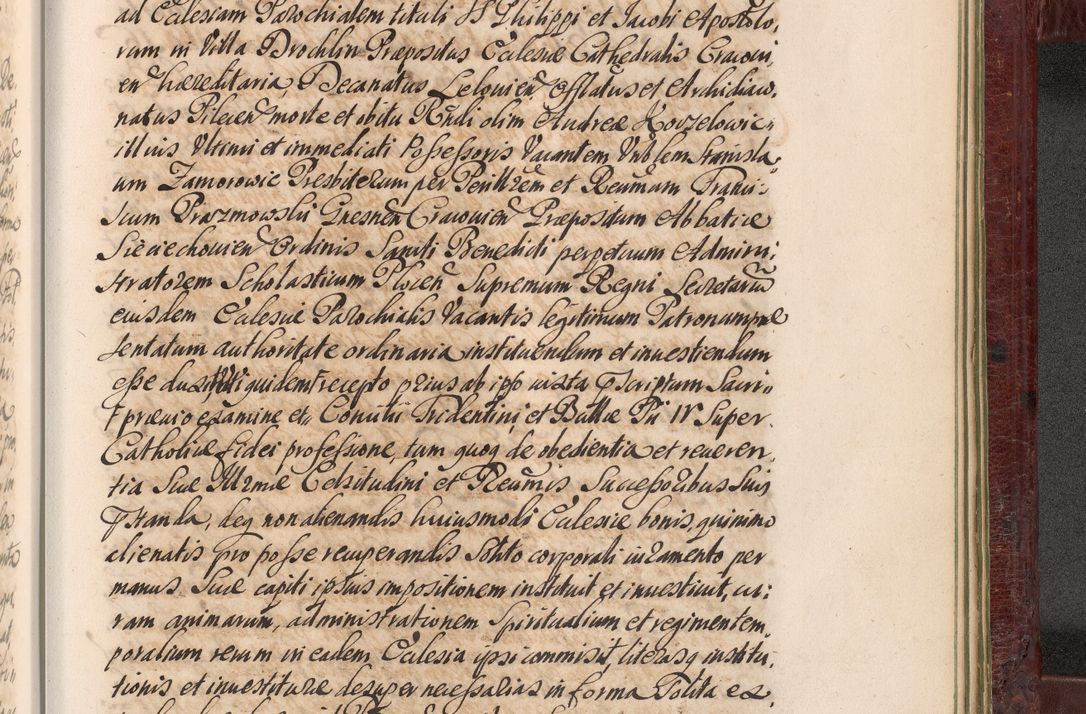 ad Ecclesiam Parochialem tituli SS Philippi et Jacobi Apostolo,
rum in Villa Drochlin Præpositus Ecclesiæ Cathedralis Cracovi,
en hæreditaria, Decanatus Leloviem Offlatus et Archidiaco,
natus Pilecen morte et obitu Rndi olim Andreæ Horzelowic
illius Ultimi et immediati Possessoris Vacantem Vnblem Stanisla
um Zamorowic Presbiterum per Perillrem et Reumum Franci
scum Prazmowski Gnesnen Cracovien Præpositum Abbatiæ
Sieciechovien Ordinis Sancti Benedicti perpetuum Admini
stratorem Scholasticum Plocen Supremum Regni Secretariu
eiusdem Ecclesiæ Parochialis Vacantis legitimum Patronum præ
sentatum authoritate ordinaria instituendum et investiendum
esse duxit quidem recepto prius ab ipso iuxta præscriptum Sacri
prævio examine et Concilii Tridentini, et Bullæ Pii IV Super
Catholicæ fidei professione, tum quoq de obedientia et reveren,
tia Suæ Illrmæ Celsitudini et Reumis Successoribus Suis
præstanda, deq non alienandis huiusmodi Ecclesiæ bonis, quinimo
alienatis pro posse recuperandis Solito corporali iuramento per
manus Suæ capiti ipsius impositionem instituit et investivit, cu
ram animarum, administrationem Spiritualium et regimen tem
poralium rerum in eadem Ecclesia ipsi commisit, literasq institu,
tionis et investituræ desuper necessarias in forma Solita ex